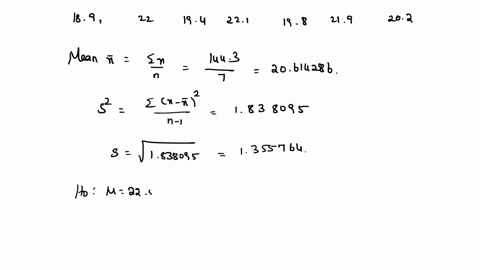 18.9, 22 19.4 22.1 19.8 21.9 20.2
Mean x̄ = Σx/n = 144.3/7 = 20.614286.
S² = Σ(x-x̄)²/n-1 = 1.838095
S = √1.838095 = 1.355764.
H₀: M=22.